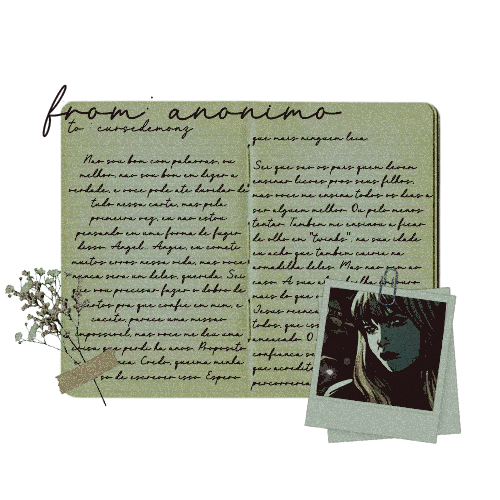 from anonimo
to cursedemonz
Nao sou bom com palavras, ou
melhor, nao sou bom em dizer a
verdade, e voce pode ate duvidar de
tudo nessa carta, mas pela
primeira vez, eu nao estou
pensando em uma forma de fugir
disso. Angel.. Angie, eu cometi
muitos erros nessa vida, mas voce
nunca sera um deles, querida. Sei
que vou precisar fazer o dobro de
pra que confie em mim, e
parece uma missao
impossivel, mas voce me deu uma
que perdi ha anos. Proposito
Credo, queima minha
de escrever isso. Espero
que mais ninguem leia.
Sei que sao os pais quem devem
ensinar licoes pros seus filhos,
mas voce me ensina todos os dias a
ser alguem melhor. Ou pelo menos
tentar. Tambem me ensinou a ficar
de olho em "twinks", na sua idade
eu acho que tambem cairia na
armadilha deles. Mas nao
caso. A sua
mais do que
Jesus
todos, que
ameacado. O
confianca
que
percorreria